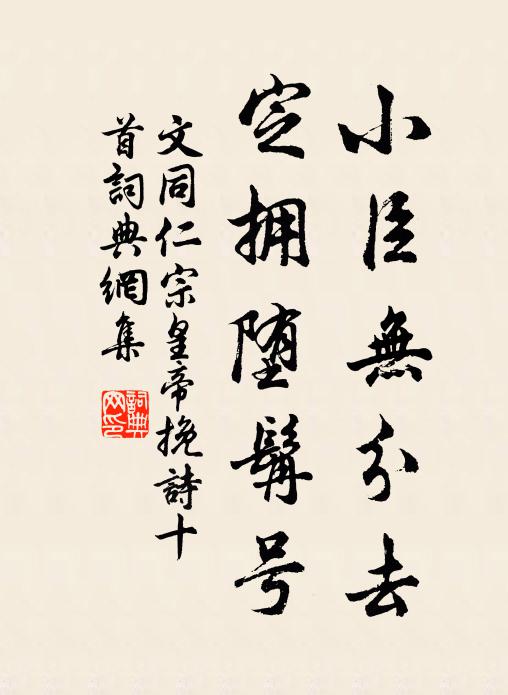 小臣無分去
空拥堕髯号
文同仁宗皇帝挽詩十
首詞典網集
詞典
网印